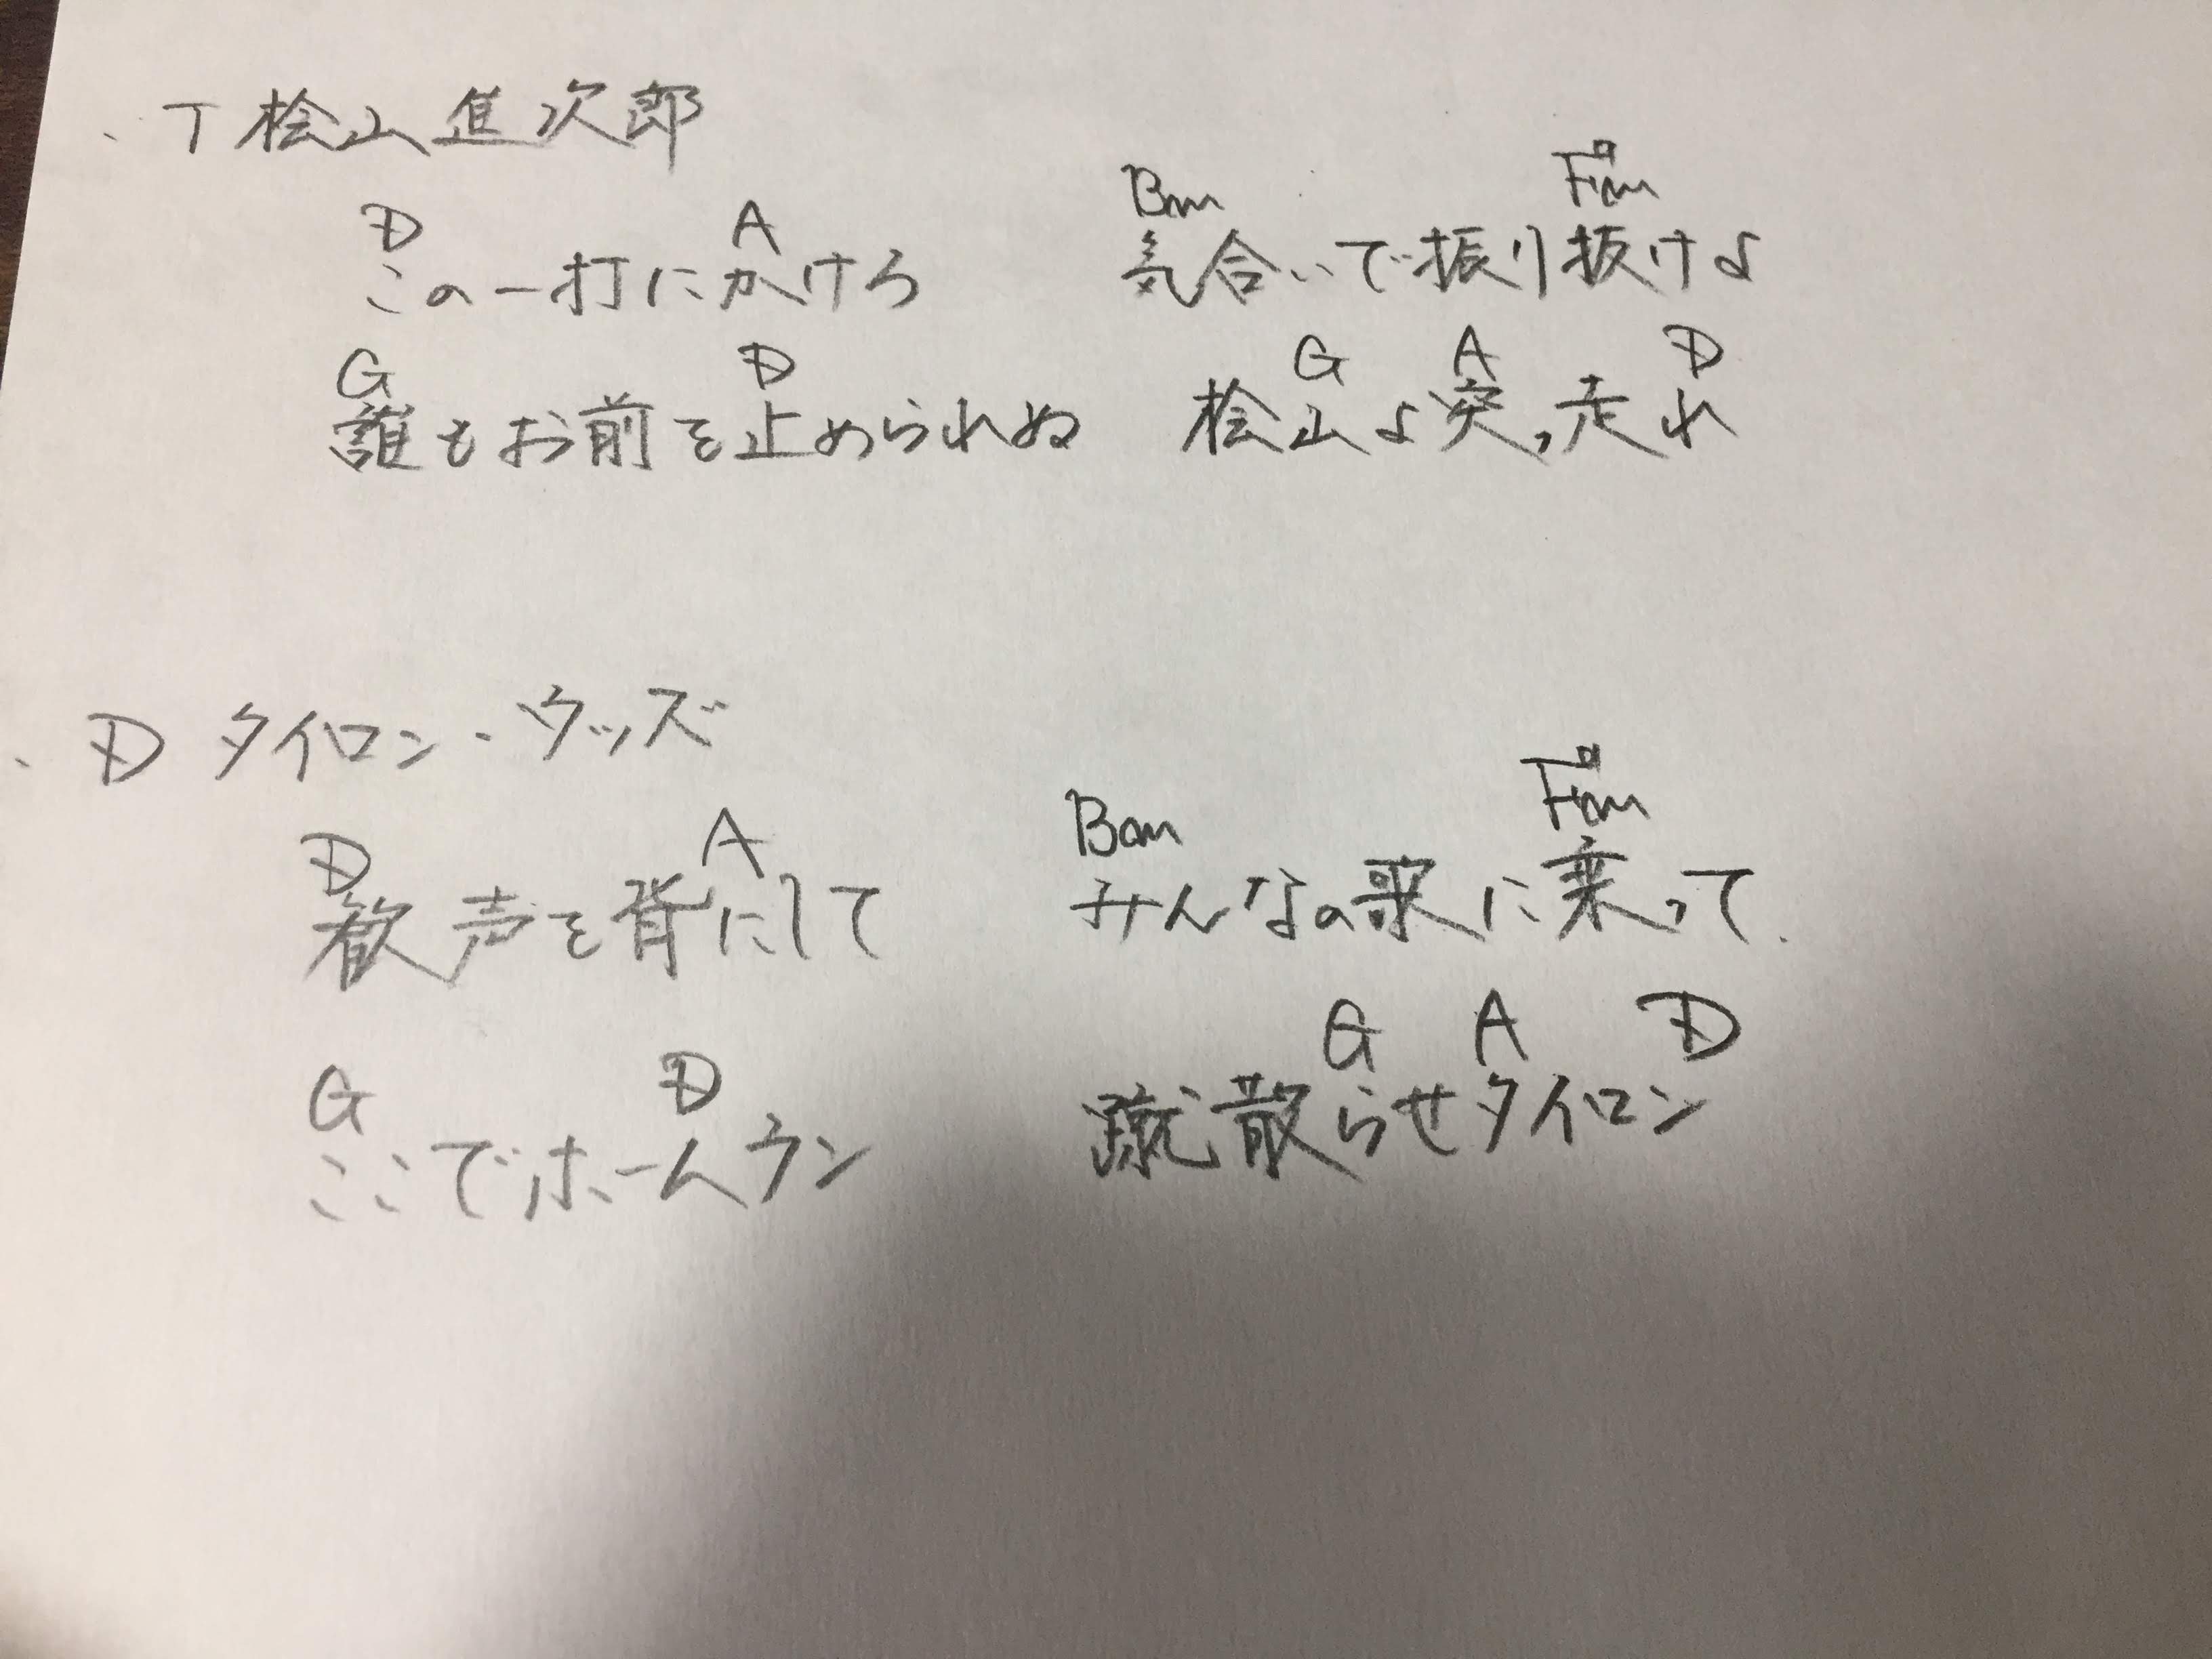 T 桧山進次郎
D A Bm F#m
この一打にかけろ 気合いで振り抜けよ
G D G A D
誰もお前を止められぬ 桧山よ突っ走れ
D タイロン・ウッズ
D A Bm F#m
歓声を背にして みんなの歌に乗って
G D G A D
ここでホームラン 蹴散らせタイロン